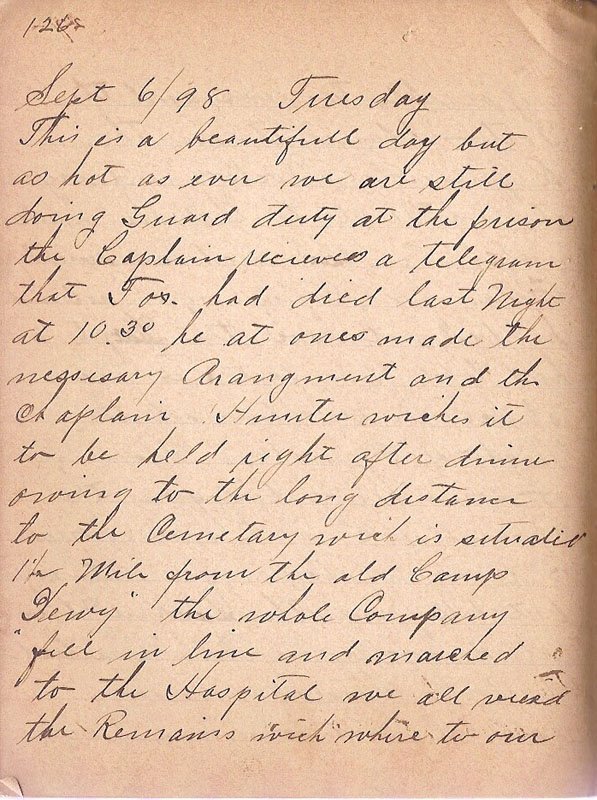 126
Sept 6/98 Tuesday
This is a beautifull day but
as hot as ever we are still
doing Guard duty at the prison
the Captain recieves a telegram
that Jos. had died last Night
at 10.30 he at ones made the
nessesary Arangment and the
Chaplain Hunter wishes it
to be held right after dinner
owing to the long distance
to the Cemetary wich is situated
1 1/2 Mile from the old Camp
"Dewy" the whole Company
fell in line and marched
to the Hospital we all viewd
the Remains wich where to our